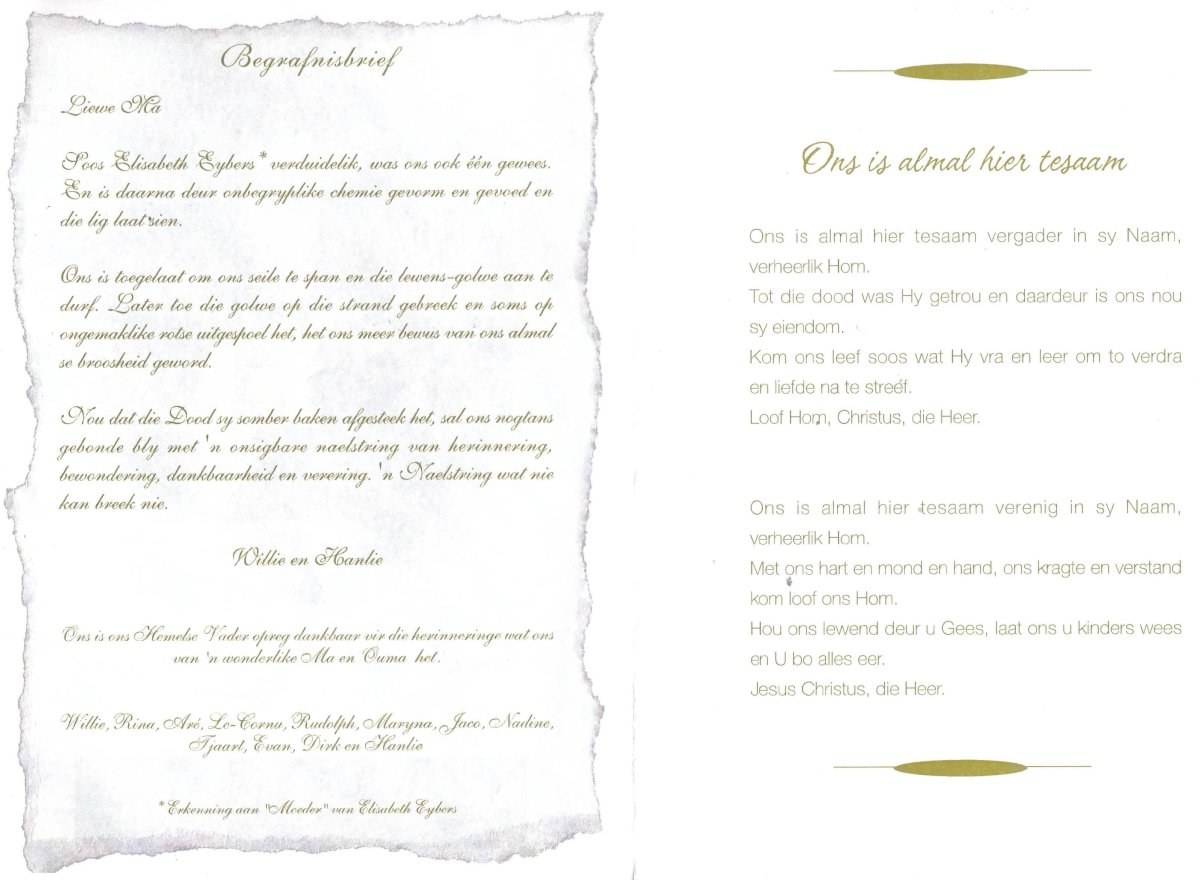 Begrafnisbrief
Liewe Ma
Soos Elisabeth Eybers* verduidelik, was ons ook één gewees.
En is daarna deur onbegryplike chemie gevorm en gevoed en
die lig laat sien.
Ons is toegelaat om ons seile te span en die lewens-golwe aan te
durf. Later toe die golwe op die strand gebreek en soms op
ongemaklike rotse uitgespoel het, het ons meer bewus van ons almal
se broosheid geword.
Nou dat die Dood sy somber baken afgesteek het, sal ons nogtans
gebonde bly met 'n onsigbare naelstring van herinnering,
bewondering, dankbaarheid en verering. 'n Naelstring wat nie
kan breek nie.
Willie en Hanlie
Ons is ons Hemelse Vader opreg dankbaar vir die herinneringe wat ons
van 'n wonderlike Ma en Ouma het.
Willie, Rina, Aré, Le-Cornu, Rudolph, Maryna, Jaco, Nadine,
Tjaart, Evan, Dirk en Hanlie
*Erkenning aan "Moeder" van Elisabeth Eybers
Ons is almal hier tesaam
Ons is almal hier tesaam vergader in sy Naam,
verheerlik Hom.
Tot die dood was Hy getrou en daardeur is ons nou
sy eiendom.
Kom ons leef soos wat Hy vra en leer om to verdra
en liefde na te streef.
Loof Hom, Christus, die Heer.
Ons is almal hier tesaam verenig in sy Naam,
verheerlik Hom.
Met ons hart en mond en hand, ons kragte en verstand
kom loof ons Hom.
Hou ons lewend deur u Gees, laat ons u kinders wees
en U bo alles eer.
Jesus Christus, die Heer.